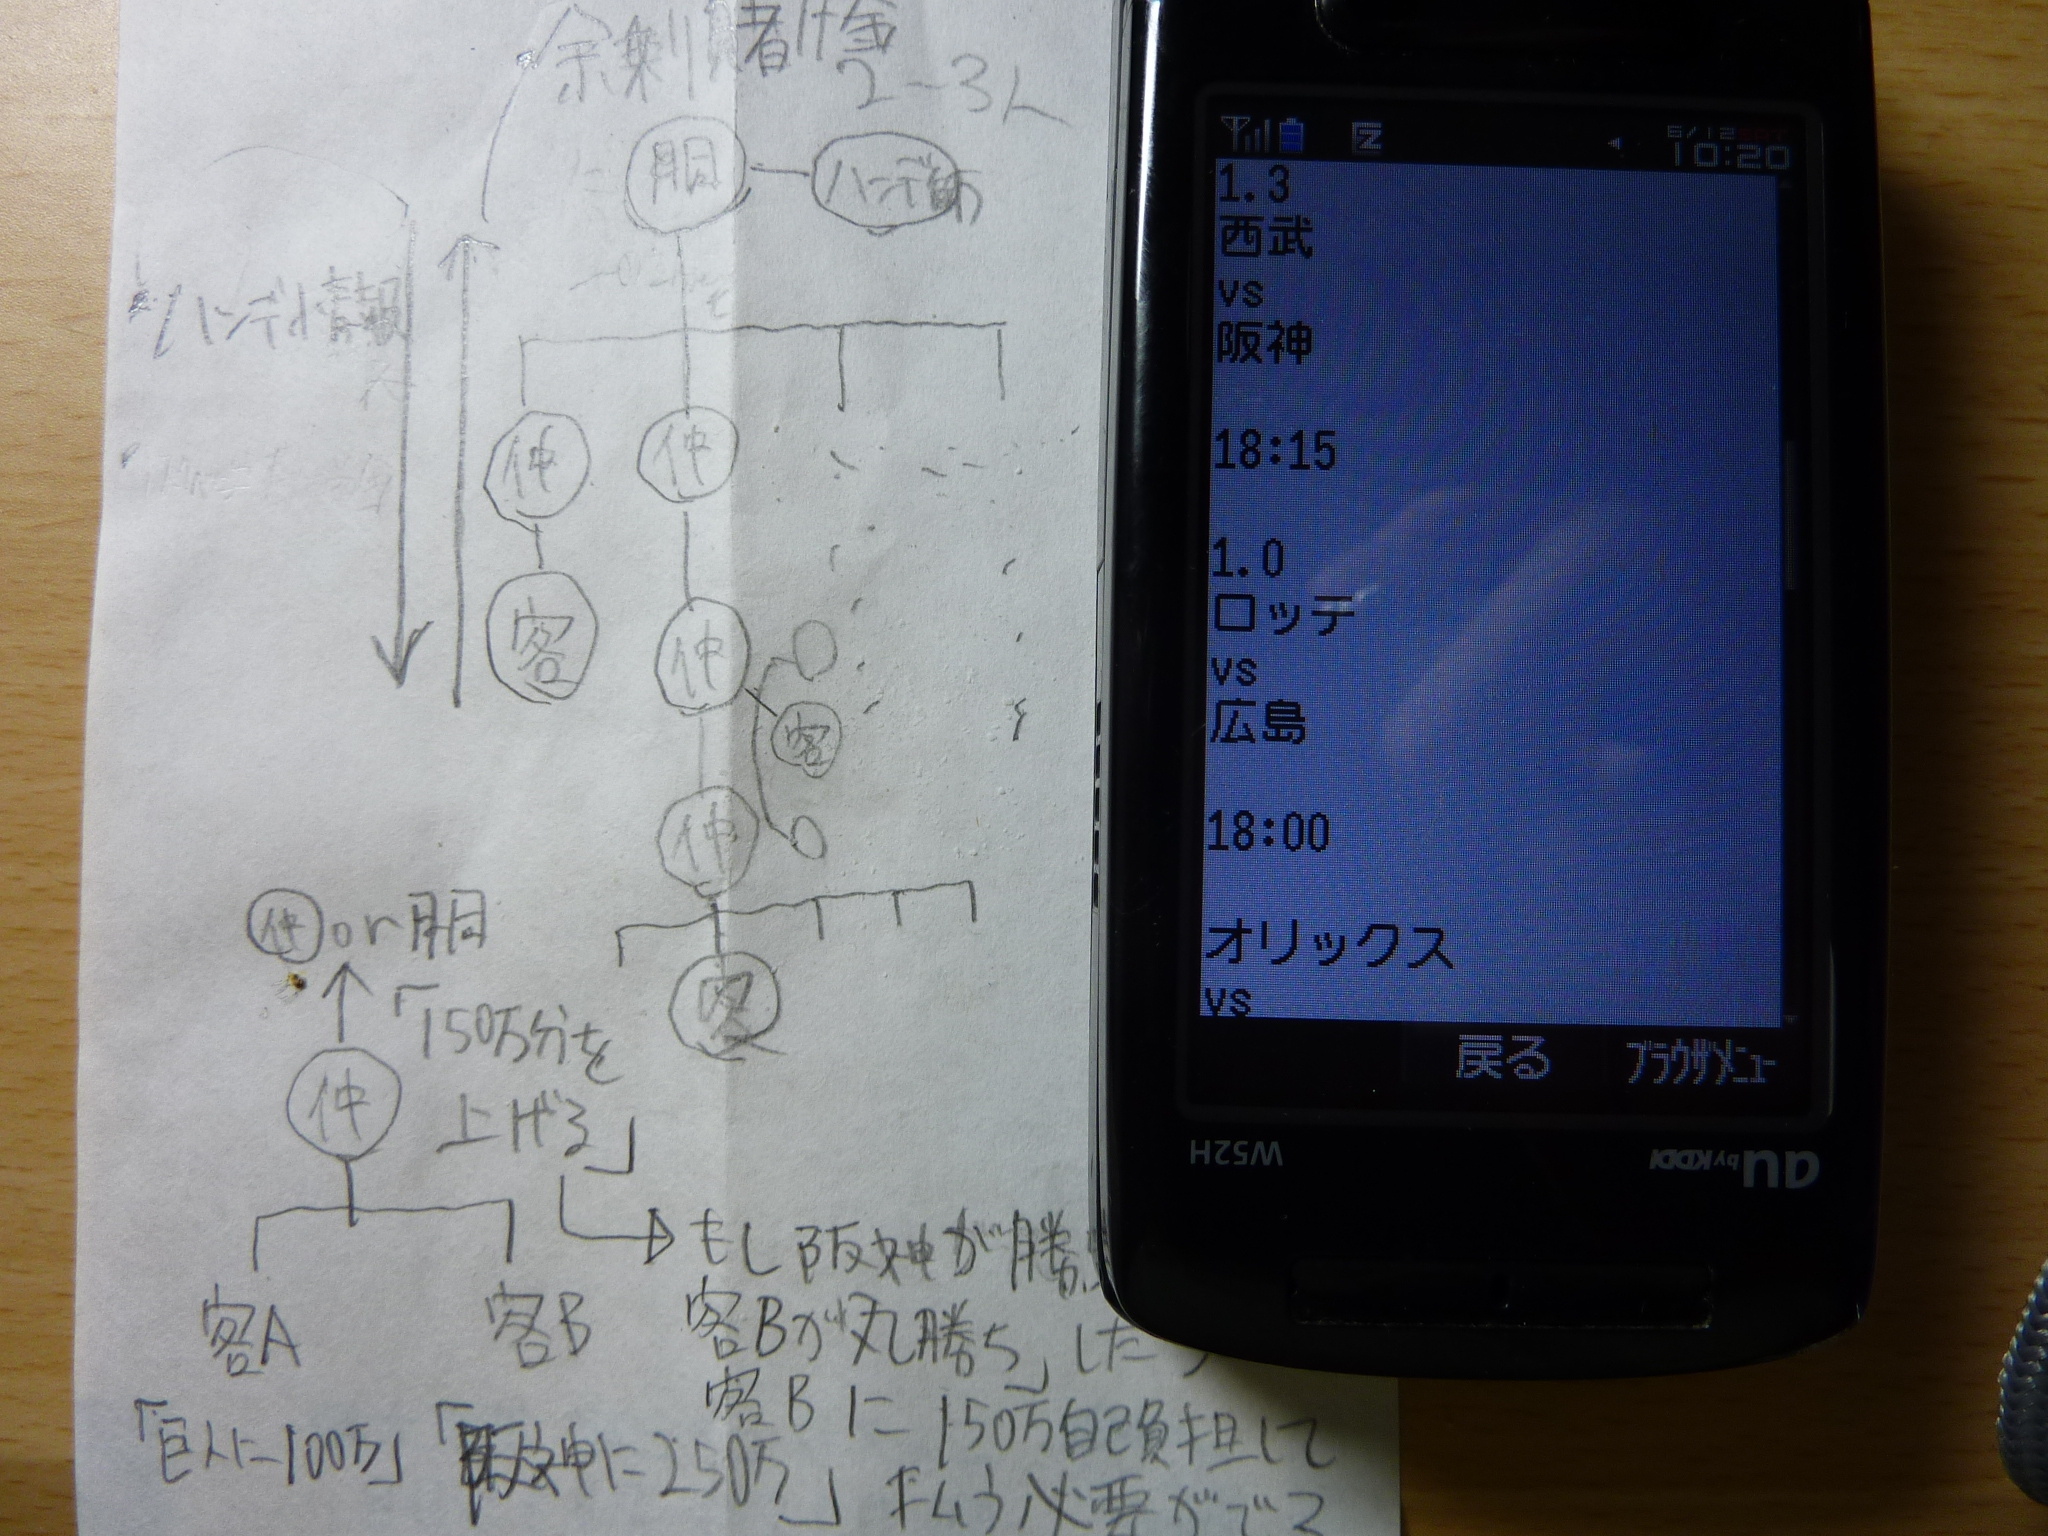 余剰賭け金
2-3人
胴
ハンデ師
ハンデ情報
仲
仲
客
仲
客
仲
客
仲or胴
「150万分を
上げる」
仲
客A
客B
「巨人に100万」
「阪神に250万」
もし阪神が勝
客Bが丸勝ち」した
客Bに150万自己負担して
払う必要がでて
6/12
10:20
1.3
西武
vs
阪神
18:15
1.0
ロッテ
vs
広島
18:00
オリックス
vs
戻る
ブラウザメニュー
W52H
au by KDDI